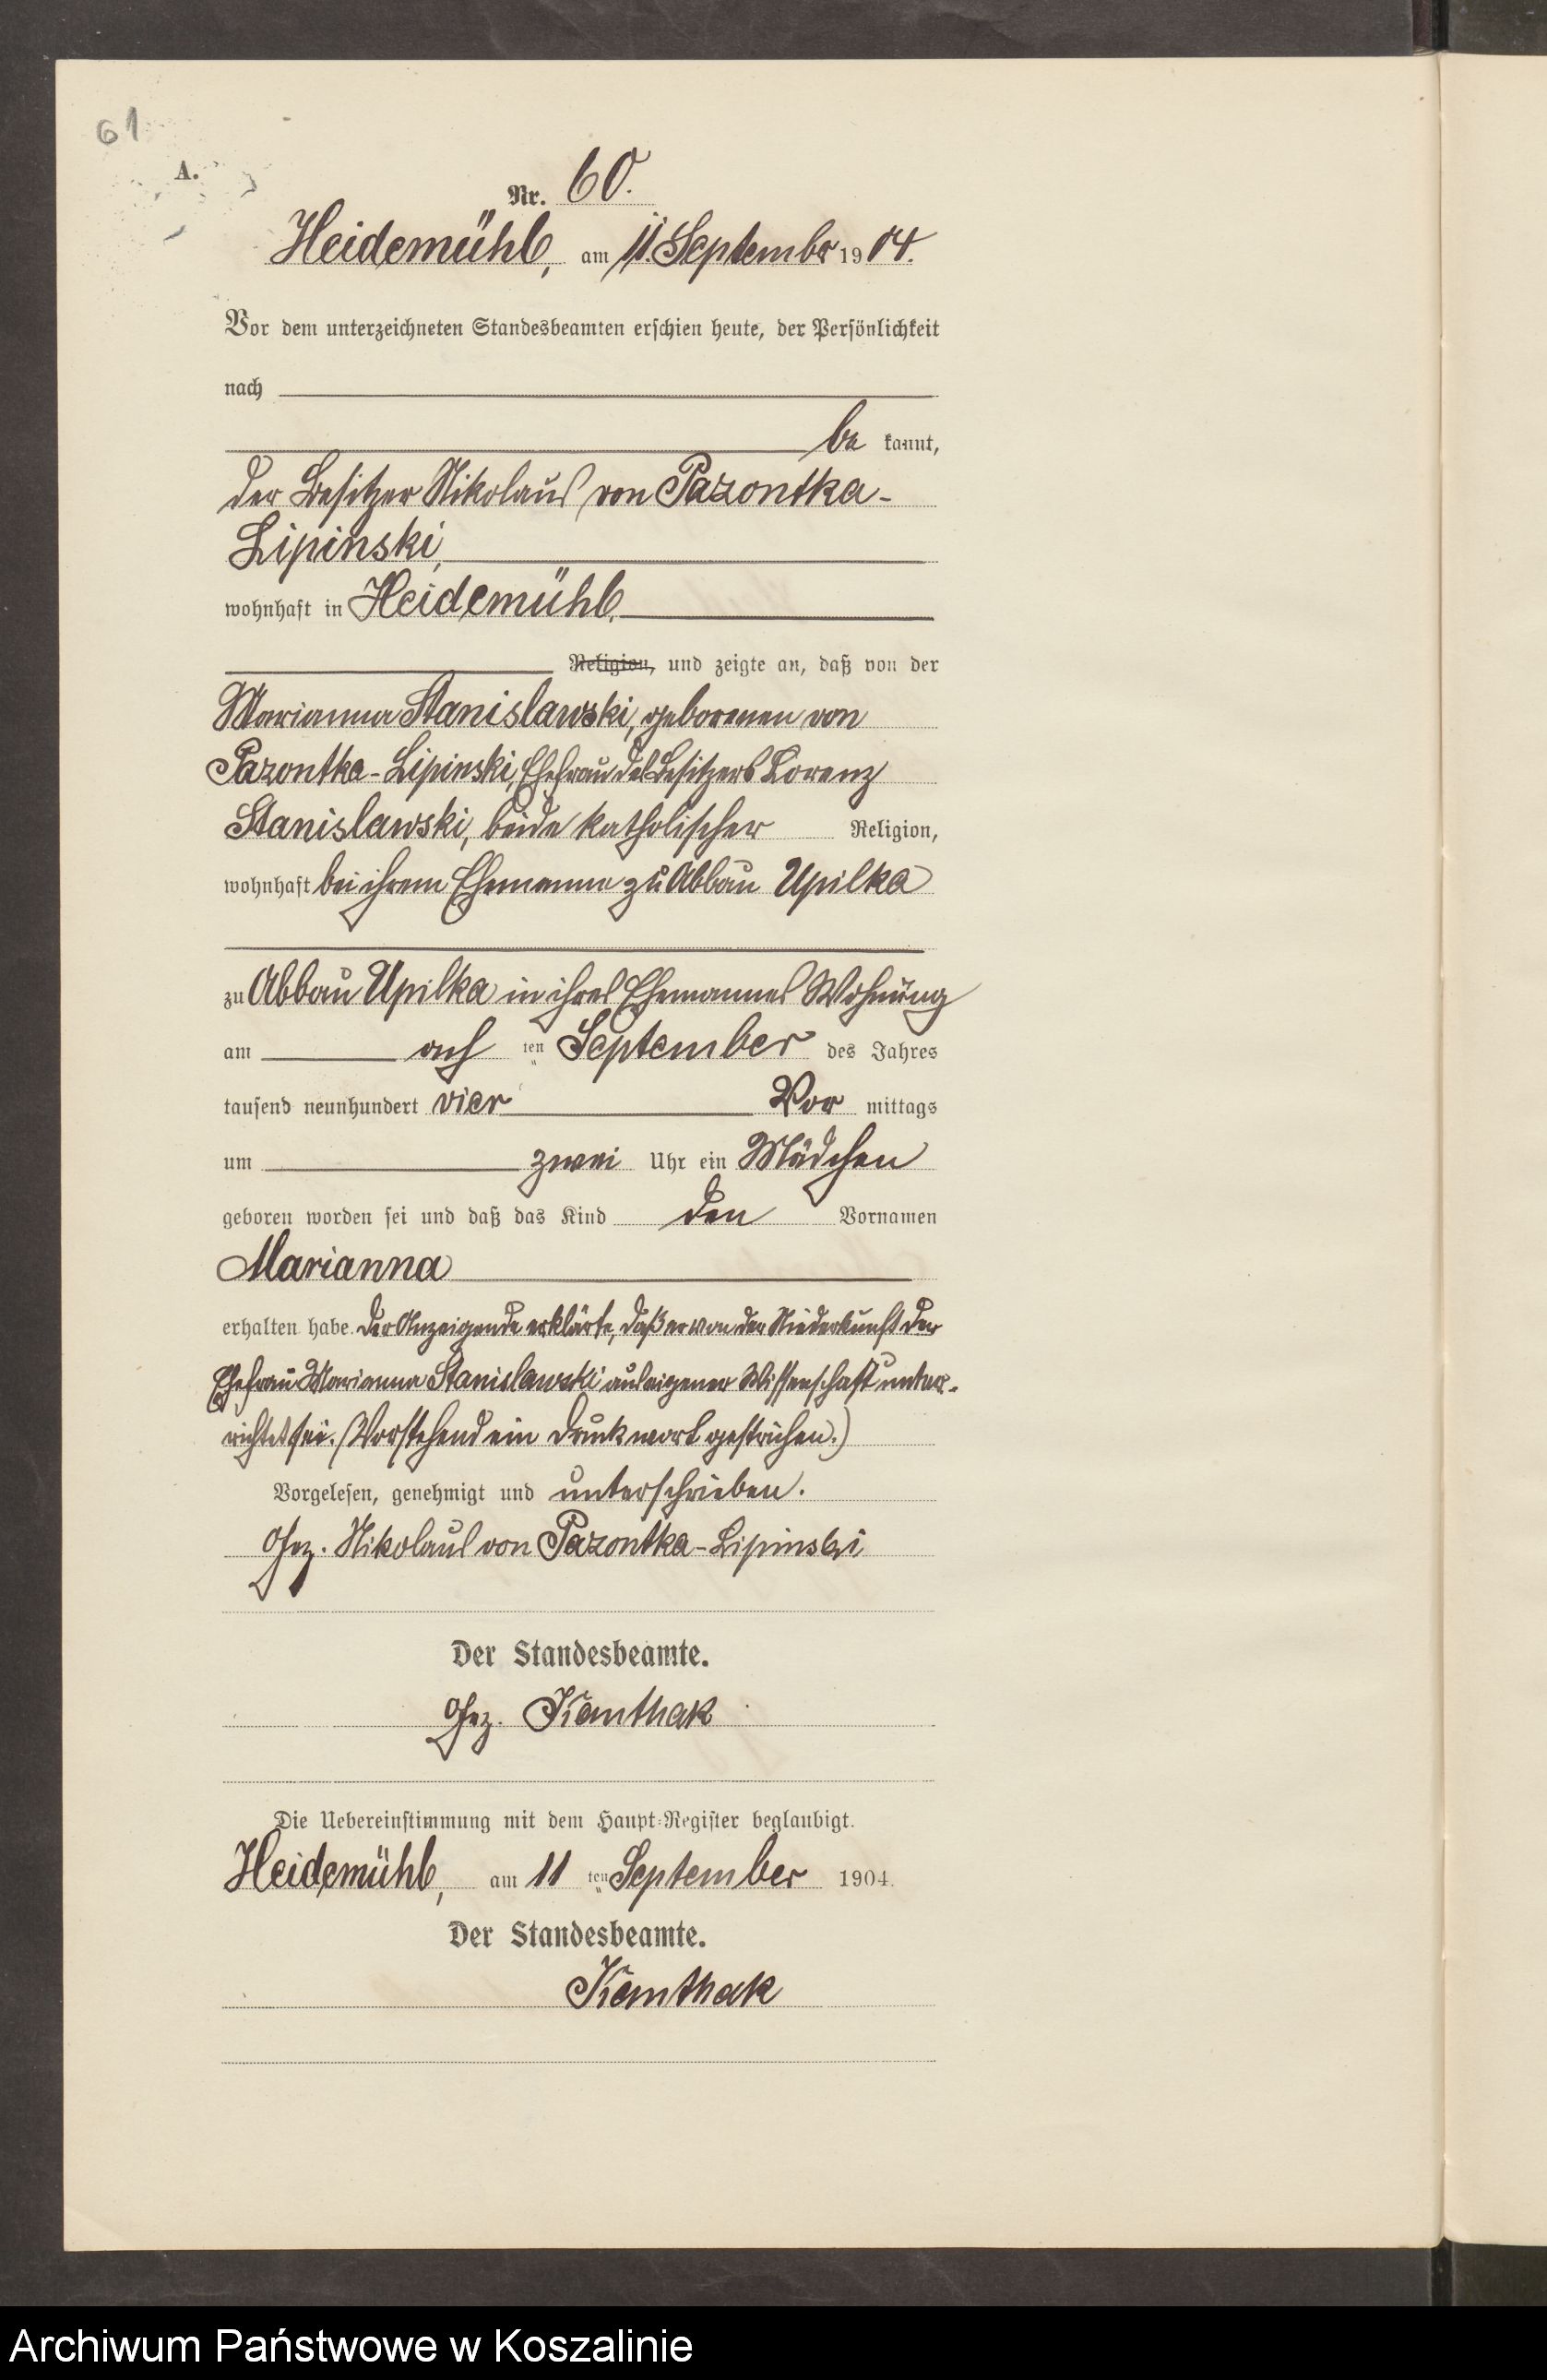 61
A.
Nr. 60.
Heidemühl, am 11. September 1904.
Vor dem unterzeichneten Standesbeamten erschien heute, der Persönlichkeit
nach
be kannt,
der Besitzer Nikolaus von Pazontka-
Lipinski,
wohnhaft in Heidemühl,
Religion, und zeigte an, daß von der
Marianna Stanislawski, geborenen von
Pazontka-Lipinski, Ehefrau des Besitzers Lorenz
Stanislawski, beide katholischer Religion,
wohnhaft bei ihrem Ehemanne zu Abbau Upilka
zu Abbau Upilka in ihres Ehemannes Wohnung
am acht ten September des Jahres
tausend neunhundert vier Vor mittags
um zwei Uhr ein Mädchen
geboren worden sei und daß das Kind den Vornamen
Marianna
erhalten habe. Der Anzeigende erklärte, daß er von der Niederkunft der
Ehefrau Marianna Stanislawski aus eigener Wissenschaft unter-
richtet sei. (Vorstehend ein Druckwort gestrichen.)
Vorgelesen, genehmigt und unterschrieben.
Gez. Nikolaus von Pazontka-Lipinski
Der Standesbeamte.
Gez. Kamthak
Die Uebereinstimmung mit dem Haupt-Register beglaubigt.
Heidemühl, am 11 ten September 1904.
Der Standesbeamte.
Kamthak
Archiwum Państwowe w Koszalinie